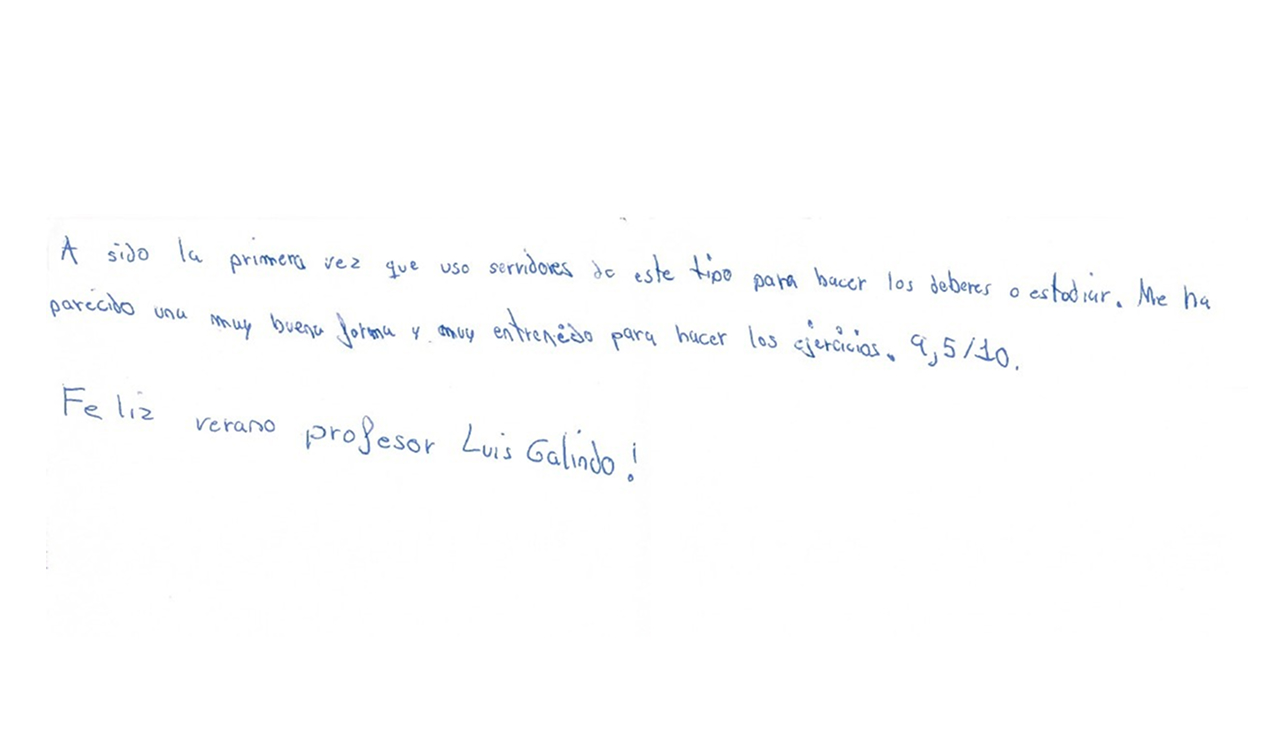 A sido la primera vez que uso servidores de este tipo para hacer los deberes o estodiar. Me ha
parecido una muy buena forma y muy entrenedo para hacer los ejercicios. 9,5/10.
Feliz verano profesor Luis Galindo!